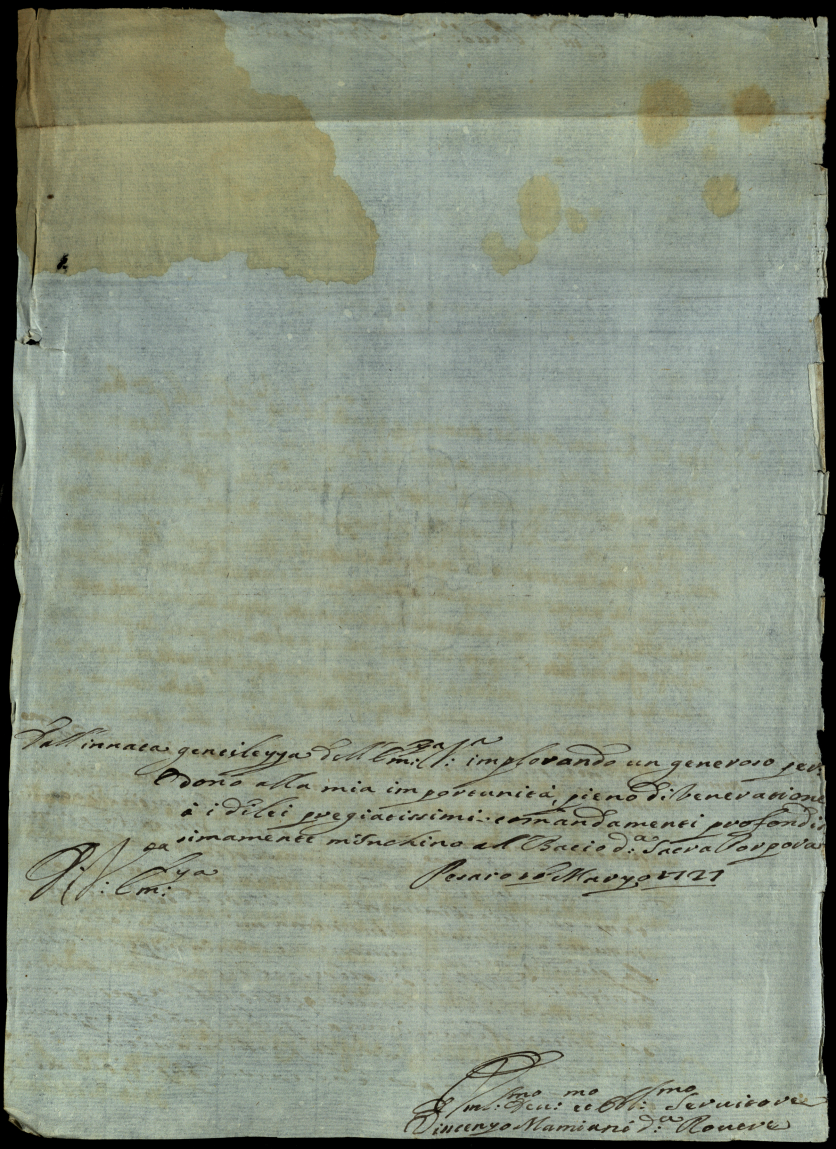 Dall'innata gentilezza dell'Em:za V:a implorando un generoso per=
dono alla mia importunità, pieno di veneratione
à i di lei pregiatissimi comandamenti profondis
simamente m'inchino al Bacio d:a Sacra Porpora
Di V: Em:za
Pesaro 16 Marzo 1727
Devmo et Obl:mo Servitore
Vincenzo Mamiani d:a Rovere